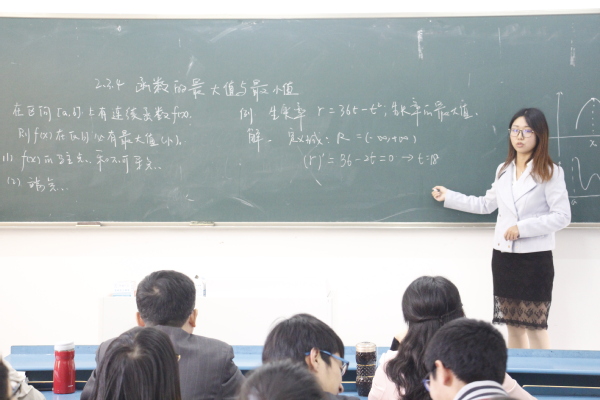 2.3.4 函数的最大值与最小值
在区间 [a,b] 上有连续函数 f(x).
则 f(x) 在 [a,b] 必有最大值(小).
(1) f(x) 的驻点、和不可导点.
(2) 端点.
例 生长率 r = 36t - t²; 生长率的最大值.
解. 定义域: R = (-∞,+∞)
(r)' = 36 - 2t = 0 → t = 18
x